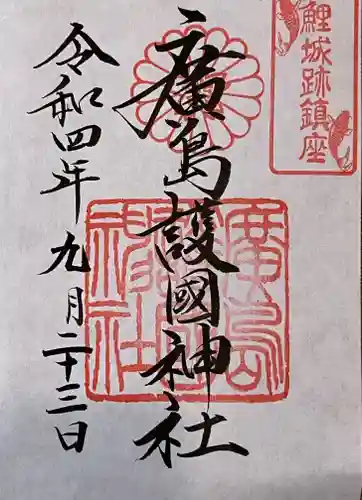 鯉城跡鎮座
廣島護國神社
令和四年九月二十三日
廣島護國神社